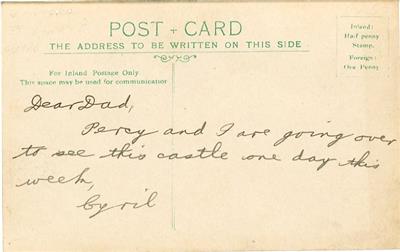 POST + CARD
THE ADDRESS TO BE WRITTEN ON THIS SIDE
Inland:
Half penny
Stamp.
Foreign:
One Penny
For Inland Postage Only
This space may be used for communication
Dear Dad,
Percy and I are going over
to see this castle one day this
week,
Cyril